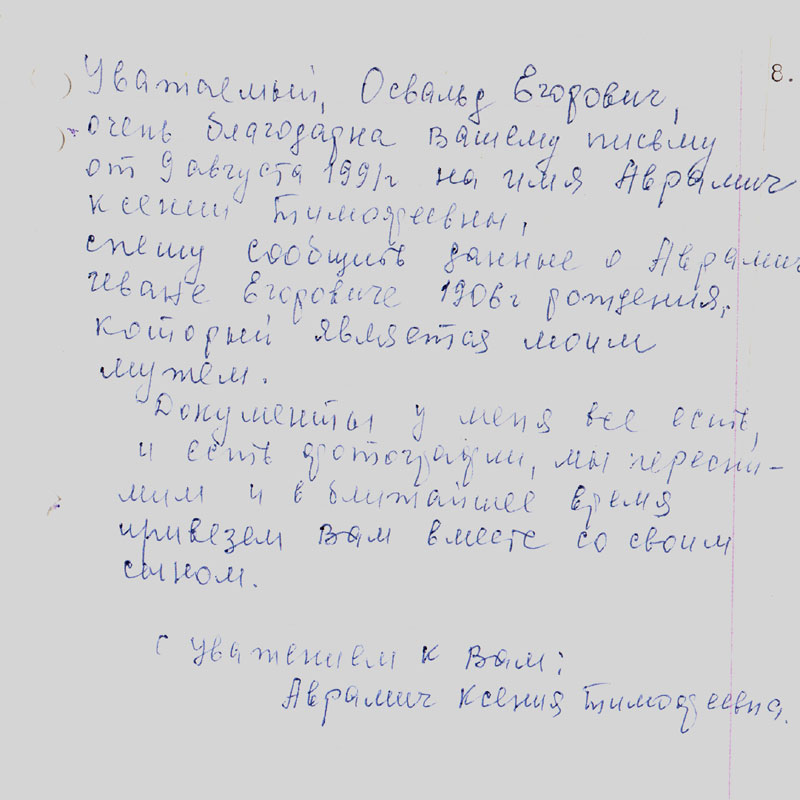 8.
Уважаемый, Освальд Егорович,
очень благодарна Вашему письму
от 9 августа 1991г на имя Аврамич
Ксении Тимофеевны,
спешу сообщить данные о Аврамич
Иване Егоровиче 1906г рождения,
который является моим
мужем.
Документы у меня все есть,
и есть фотографии, мы пересни-
мим и в ближайшее время
привезем Вам вместе со своим
сыном.
С уважением к Вам:
Аврамич Ксения Тимофеевна.